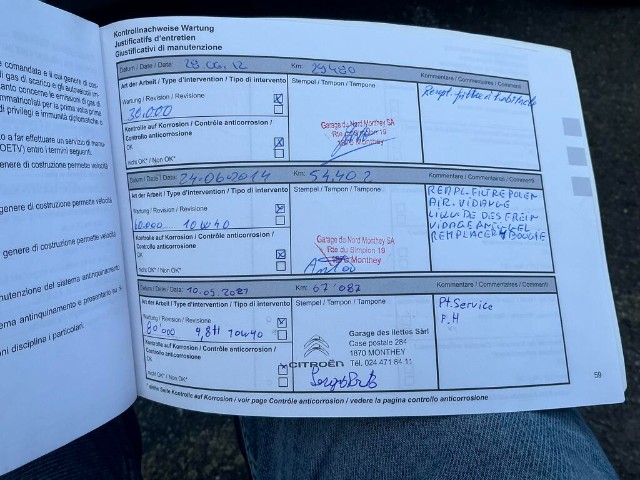 Kontrollnachweise Wartung
Justificatifs d'entretien
Giustificativi di manutenzione
Datum / Date / Data : 28.06.12 Km: 29480
Art der Arbeit / Type d'intervention / Tipo di intervento
Stempel / Tampon / Tampone
Kommentare / Commentaires / Commenti
Wartung / Revision / Revisione
30.000
Kontrolle auf Korrosion / Contrôle anticorrosion /
Controllo anticorrosione
OK
nicht OK* / Non OK*
Garage du Nord Monthey SA
Rte du Simplon 19
Monthey
Rempl. filtre
Datum / Date / Data : 24-06-2014 Km: 54.402
Art der Arbeit / Type d'intervention / Tipo di intervento
Stempel / Tampon / Tampone
Kommentare / Commentaires / Commenti
Wartung / Revision / Revisione
60.000 10W40
Kontrolle auf Korrosion / Contrôle anticorrosion /
Controllo anticorrosione
OK
nicht OK* / Non OK*
Garage du Nord Monthey SA
Rte du Simplon 19
Monthey
REMPL. FILTRE POLEN
AIR. VIDANGE
LIQUIDE DES FREIN
VIDANGE ANNUEL
REMPLACER 4 BOUGIE
Datum / Date / Data : 10.05.2021 Km: 67'087
Art der Arbeit / Type d'intervention / Tipo di intervento
Stempel / Tampon / Tampone
Kommentare / Commentaires / Commenti
Wartung / Revision / Revisione
80'000 10W40
Kontrolle auf Korrosion / Contrôle anticorrosion /
Controllo anticorrosione
OK
nicht OK* / Non OK*
CITROËN
Garage des Ilettes Sàrl
Case postale 284
1870 MONTHEY
Tél. 024 471 84 11
Pt. Service
F.H
* siehe Seite Kontrolle auf Korrosion / voir page Contrôle anticorrosion / vedere la pagina controllo anticorrosione
59
comandata e il cui genere di cos-
di gas di scarico e gli autoveicoli im-
tanto concerne le emissioni di gas di
mmatricolati per la prima volta prima
di privilegi e immunità diplomatiche o
to a far effettuare un servizio di manu-
OETV) entro i termini seguenti:
genere di costruzione permette velocità
genere di costruzione permette velocità
genere di costruzione permette velocità
nutenzione del sistema antinquinamento
ema antinquinamento e presentarlo su
ni disciplina i particolari.